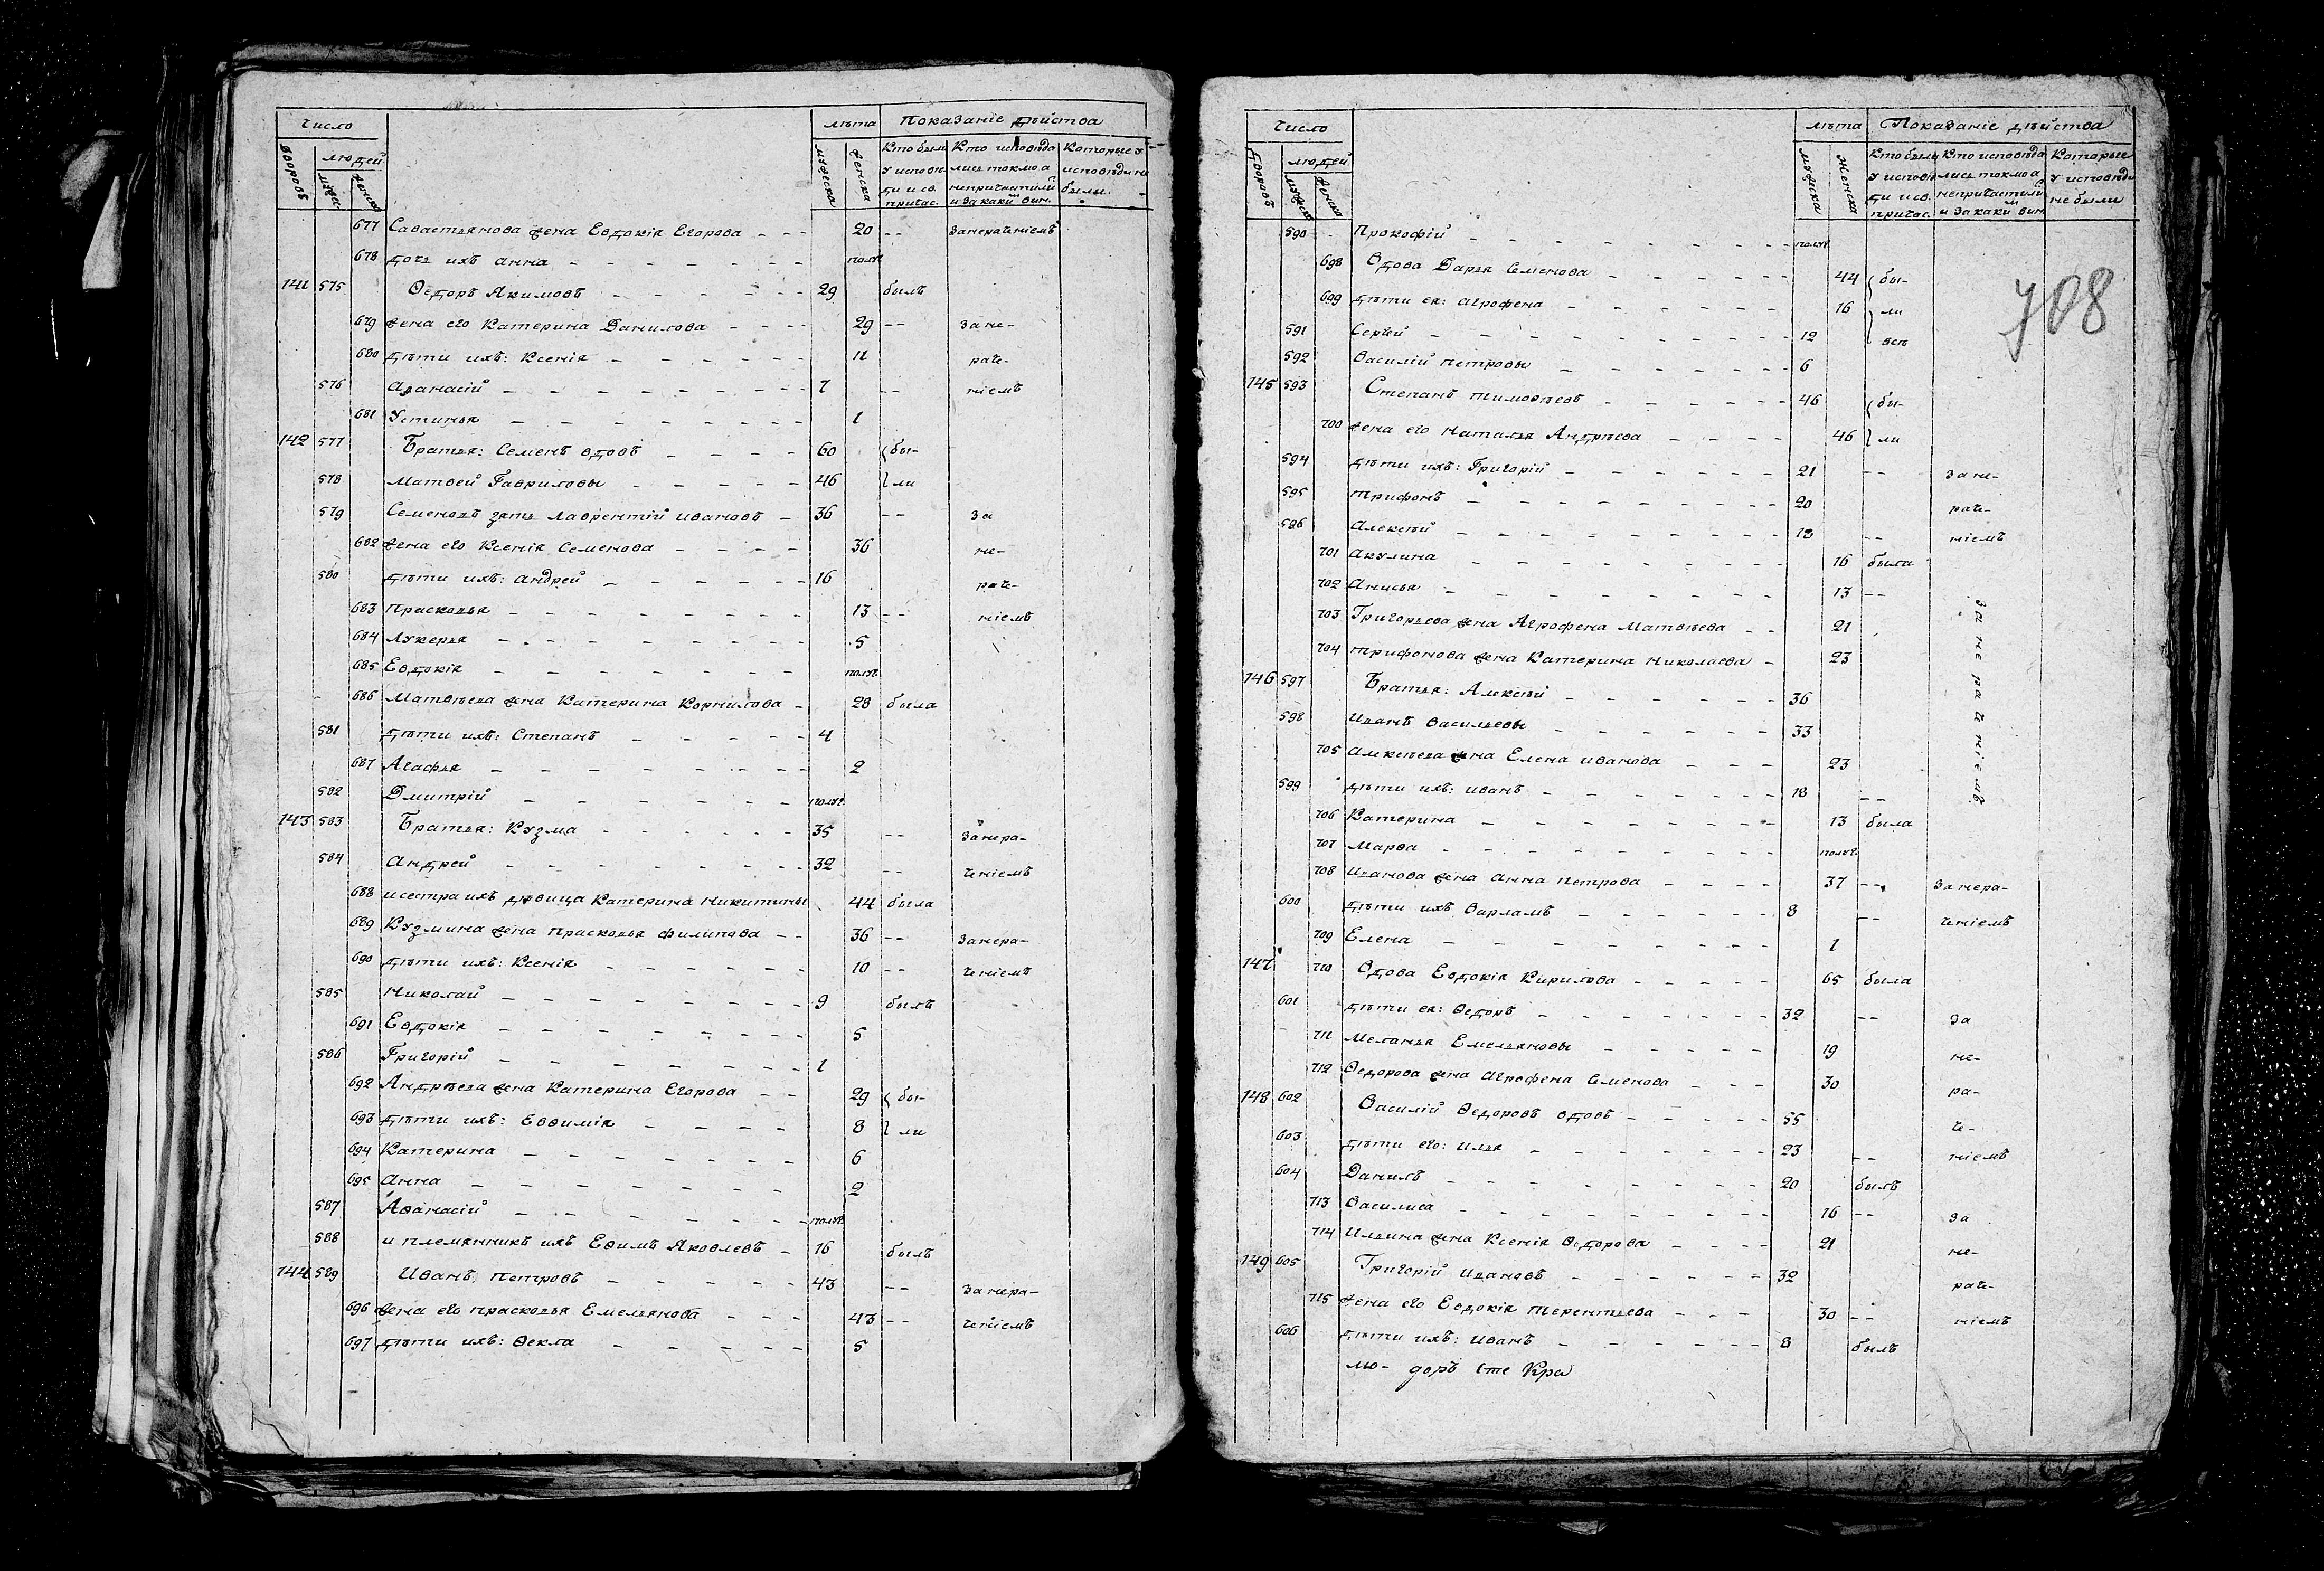 Число лѣта Показаніе дѣйства
дворовъ людей мужеска женска Кто были у исповѣди и св. причас. Кто исповѣдались токмо а непричастились и за какимъ вин. Которые у исповѣди не были.
677 Савастьянова жена Евдокія Егорова 20 -- занераченіемъ
678 дочь ихъ Анна полуг.
141 575 Ѳедоръ Якимовъ 29 былъ
679 жена его Катерина Данилова 29 -- зане-
680 дѣти ихъ: Ксенія 11 раче-
576 Аѳанасій 7 -- ніемъ
681 Устинья 1
142 577 Братья: Семенъ вдовъ 60 бы-
578 Матвей Гавриловы 46 ли
579 Семеновъ зять Лаврентій Ивановъ 36 -- за
682 жена его Ксенія Семенова 36 не-
580 дѣти ихъ: Андрей 16 раче-
683 Прасковья 13 -- ніемъ
684 Лукерья 5
685 Евдокія полуг.
686 Матвѣева жена Катерина Корнилова 28 была
581 дѣти ихъ: Степанъ 4
687 Агафья 2
582 Дмитрій полуг.
143 583 Братья: Кузма 35 -- занера-
584 Андрей 32 -- ченіемъ
688 и сестра ихъ дѣвица Катерина Никитины 44 была
689 Кузмина жена Прасковья Филипова 36 -- занера-
690 дѣти ихъ: Ксенія 10 -- ченіемъ
585 Николай 9 былъ
691 Евдокія 5
586 Григорій 1
692 Андрѣева жена Катерина Егорова 29 бы-
693 дѣти ихъ: Евѳимія 8 ли
694 Катерина 6
695 Анна 2
587 Аѳанасій полуг.
588 и племянникъ ихъ Ефимъ Яковлевъ 16 былъ
144 589 Иванъ Петровъ 43 -- занера-
696 жена его Прасковья Емельянова 43 -- ченіемъ
697 дѣти ихъ: Ѳекла 5
Число лѣта Показаніе дѣйства
дворовъ людей мужеска женска Кто были у исповѣди и св. причас. Кто исповѣдались токмо а непричастились и за какимъ вин. Которые у исповѣди не были
708
590 Прокофій полуг.
698 Вдова Дарья Семенова 44 бы-
699 дѣти ея: Агрофена 16 ли
591 Сергей 12 всѣ
592 Василій Петровы 6
145 593 Степанъ Тимоѳѣевъ 46 бы-
700 жена его Наталья Андрѣева 46 ли
594 дѣти ихъ: Григорій 21 -- зане-
595 Трифонъ 20 раче-
596 Алексѣй 18 -- ніемъ
701 Акулина 16 была
702 Анисья 13 --
703 Григорьева жена Агрофена Матвѣева 21
704 Трифонова жена Катерина Николаева 23
занераченіемъ
146 597 Братья: Алексѣй 36
598 Иванъ Васильевы 33
705 Алексѣева жена Елена Иванова 23
599 дѣти ихъ: Иванъ 18 --
706 Катерина 13 была
707 Марѳа полуг.
708 Иванова жена Анна Петрова 37 -- занера-
600 дѣти ихъ Варламъ 8 -- ченіемъ
709 Елена 1
147 710 Вдова Евдокія Кирилова 65 была
601 дѣти ея: Ѳедоръ 32 -- за
711 Меланья Емельяновы 19 не-
712 Ѳедорова жена Агрофена Семенова 30 ра-
148 602 Василій Ѳедоровъ вдовъ 55 че-
603 дѣти его: Илья 23 -- ніемъ
604 Данилъ 20 былъ
713 Василиса 16 -- за
714 Ильина жена Ксенія Ѳедорова 21 не-
149 605 Григорій Ивановъ 32 раче-
715 жена его Евдокія Терентьева 30 -- ніемъ
606 дѣти ихъ: Иванъ 8 былъ